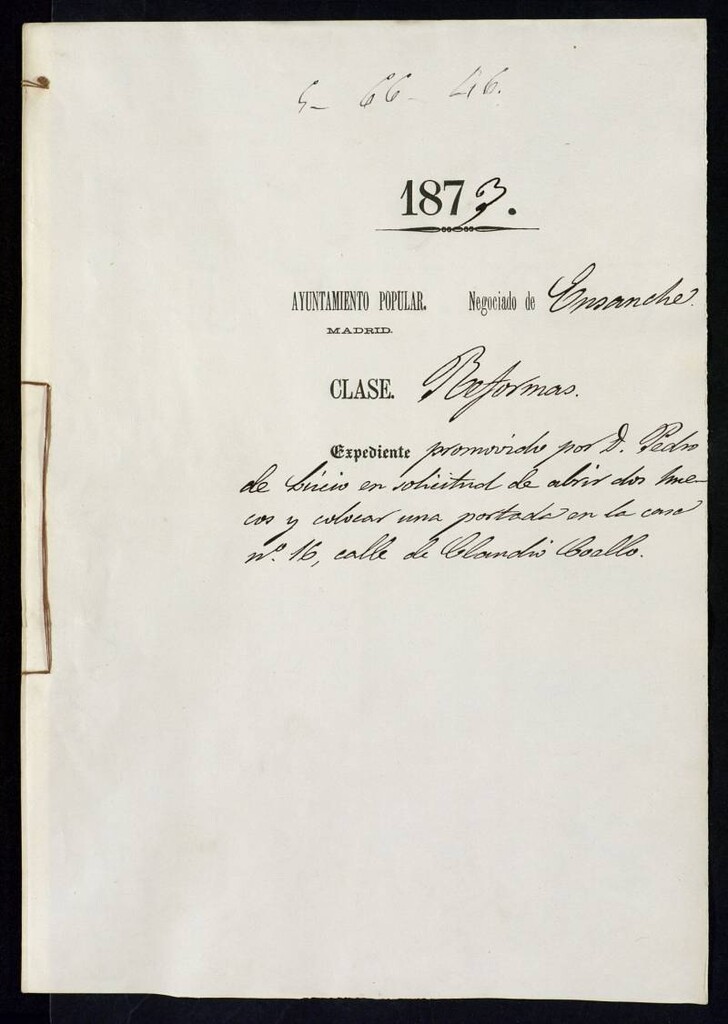 5- 66- 46.
1873.
AYUNTAMIENTO POPULAR. Negociado de Ensanche.
MADRID.
CLASE. Reformas.
Expediente promovido por D. Pedro
de Lucio en solicitud de abrir dos hue-
cos y colocar una portada en la casa
nº. 16, calle de Claudio Coello.